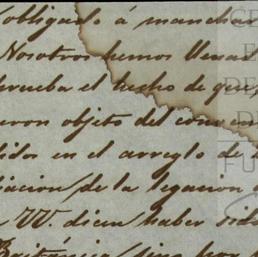 obligado á manchar
Nosotros hemos llenad
prueba el hecho de que
ueron objeto del conven
didos en el arreglo de
iacion de la legacion
VV. dicen haber sido
Británica, sino por